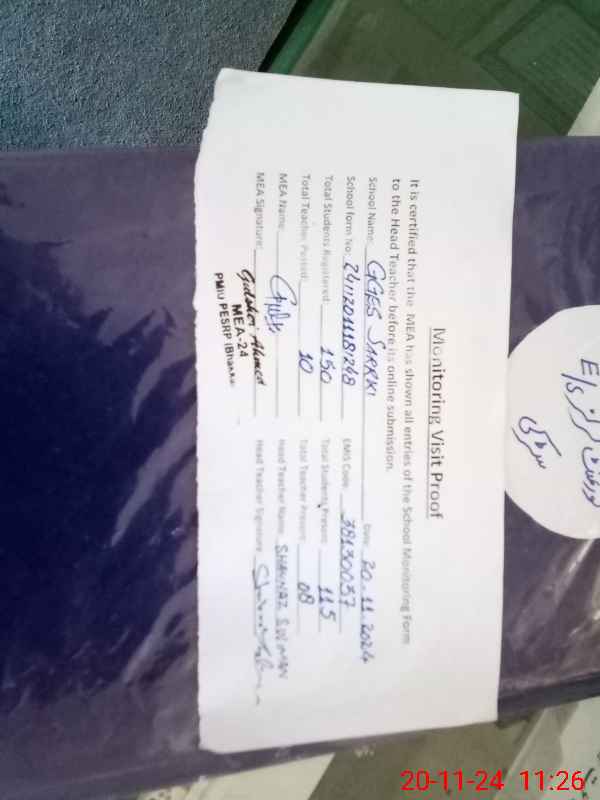 Monitoring Visit Proof
It is certified that the MEA has shown all entries of the School Monitoring Form
to the Head Teacher before its online submission.
School Name: GGES SARRIKI Date: 20.11.2024
School form No. 24112011181248 EMIS Code: 38130037
Total Students Registered: 150 Total Students Present: 115
Total Teacher Posted: 10 Total Teacher Present: 08
MEA Name: Head Teacher Name: SHAHNAZ
MEA Signature: Head Teacher Signature
Gulsher Ahmed
MEA-24
PMIU PESRP (Bhakkar
E/S
20-11-24 11:26